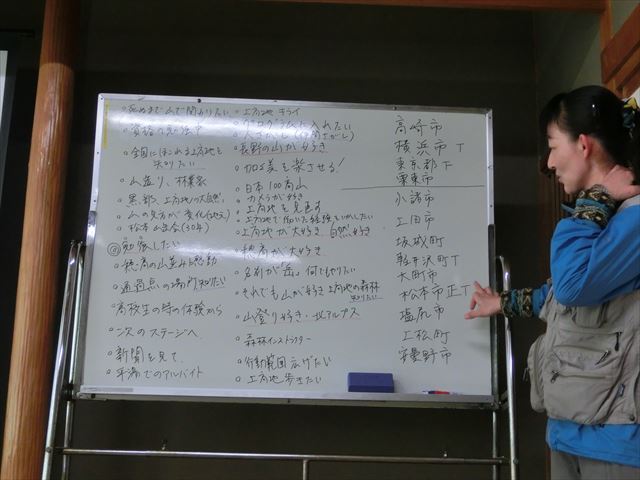 ・死ぬまで山で関わりたい
・資格の勉強中
・全国にほこれる上高地を
知りたい
・山登り、林業家
・黒部と上高地の大自然
・山の見方が変化(地元)
・松本山岳会(30年)
・勉強したい
・穂高の山並み感動
・通過点の場所知りたい
・高校生の時の体験から
・次のステージへ
・新聞を見て
・平湯でのアルバイト
・上高地 キライ
・ブログに入れたい
・長野の山が好き
・加工美を楽させる!
・日本100高山
・カメラが好き
・上高地を見直す
・上高地で働いた経験をいかしたい
・上高地が大好き 自然好き
・穂高が大好き
・名前が"岳" 何でもやりたい
・それでも山が好き 上高地の森林
知りたい
・山登り好き・北アルプス
・森林インストラクター
・行動範囲広げたい
・上高地歩きたい
高崎市
横浜市 T
東京都 下
栗東市
小諸市
上田市
坂城町
軽井沢町 T
大町市
松本市 正T
塩尻市
上松町
安曇野市